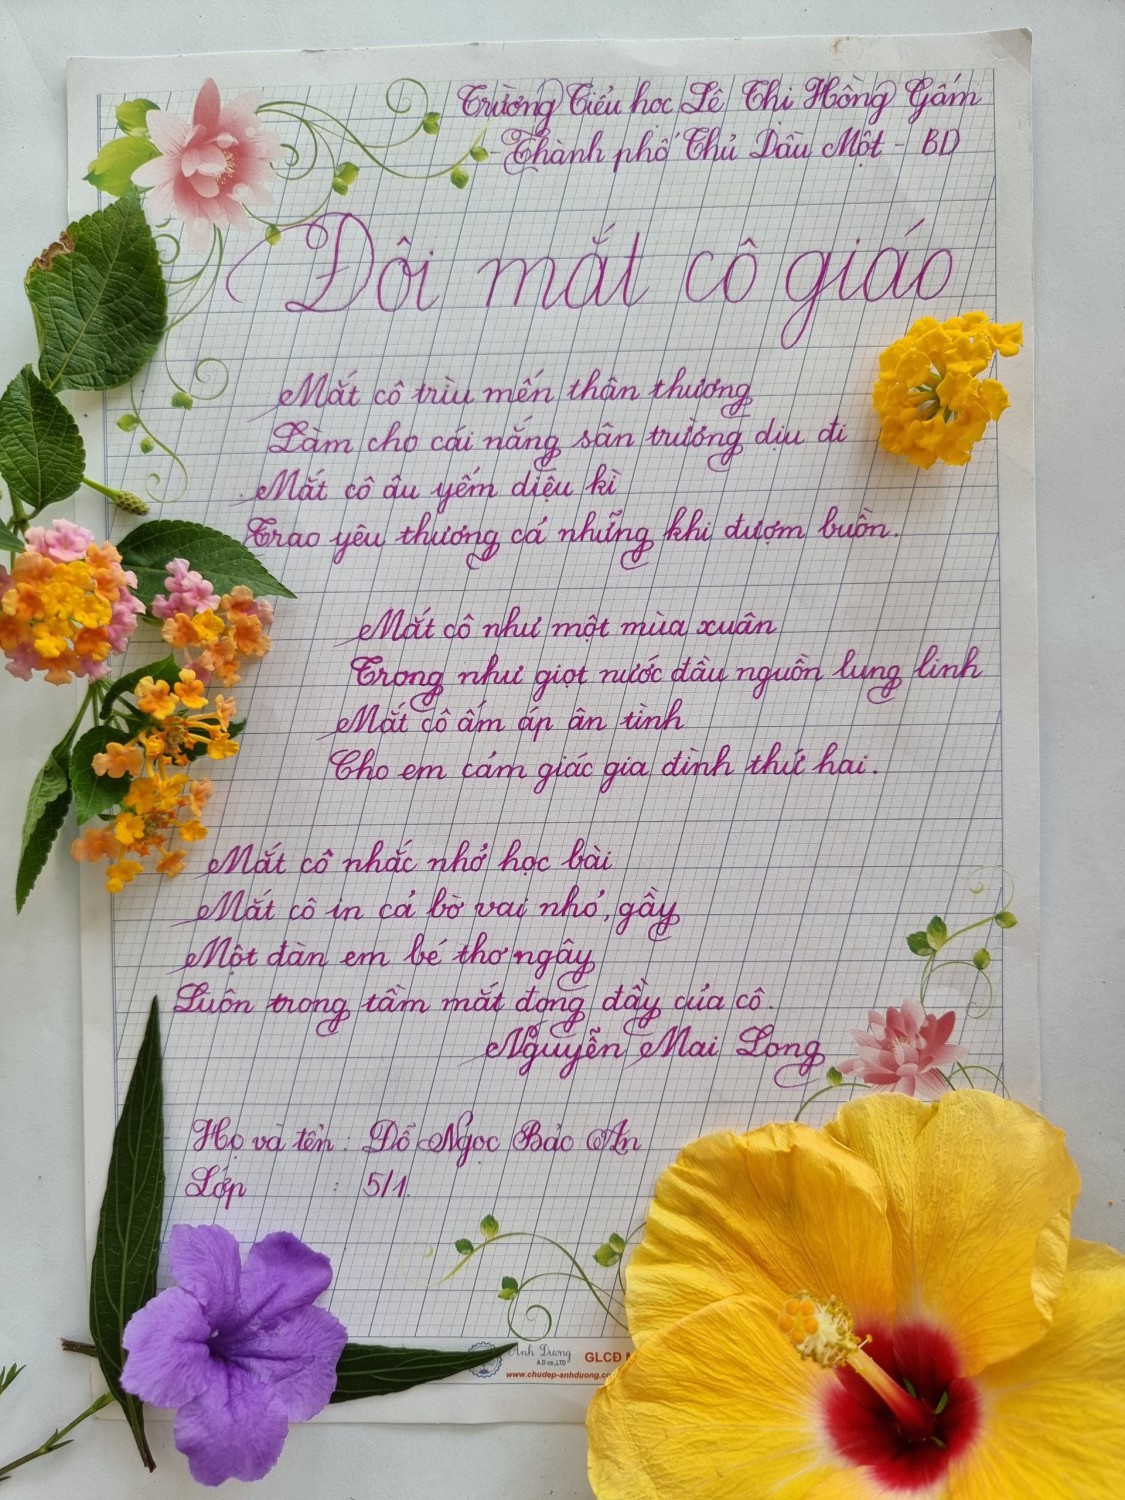 Trường Tiểu học Lê Thị Hồng Gấm
Thành phố Thủ Dầu Một - BD
Đôi mắt cô giáo
Mắt cô trìu mến thân thương
Làm cho cái nắng sân trường dịu đi
Mắt cô âu yếm diệu kì
Trao yêu thương cả những khi đượm buồn.
Mắt cô như một mùa xuân
Trong như giọt nước đầu nguồn lung linh
Mắt cô ấm áp ân tình
Cho em cảm giác gia đình thứ hai.
Mắt cô nhắc nhở học bài
Mắt cô in cả bờ vai nhỏ, gầy
Một đàn em bé thơ ngây
Luôn trong tầm mắt đong đầy của cô.
Nguyễn Mai Long
Họ và tên : Đỗ Ngọc Bảo An
Lớp : 5/1.
Anh Duong
A.D co.,LTD
GLCĐ
www.chudep-anhduong.co